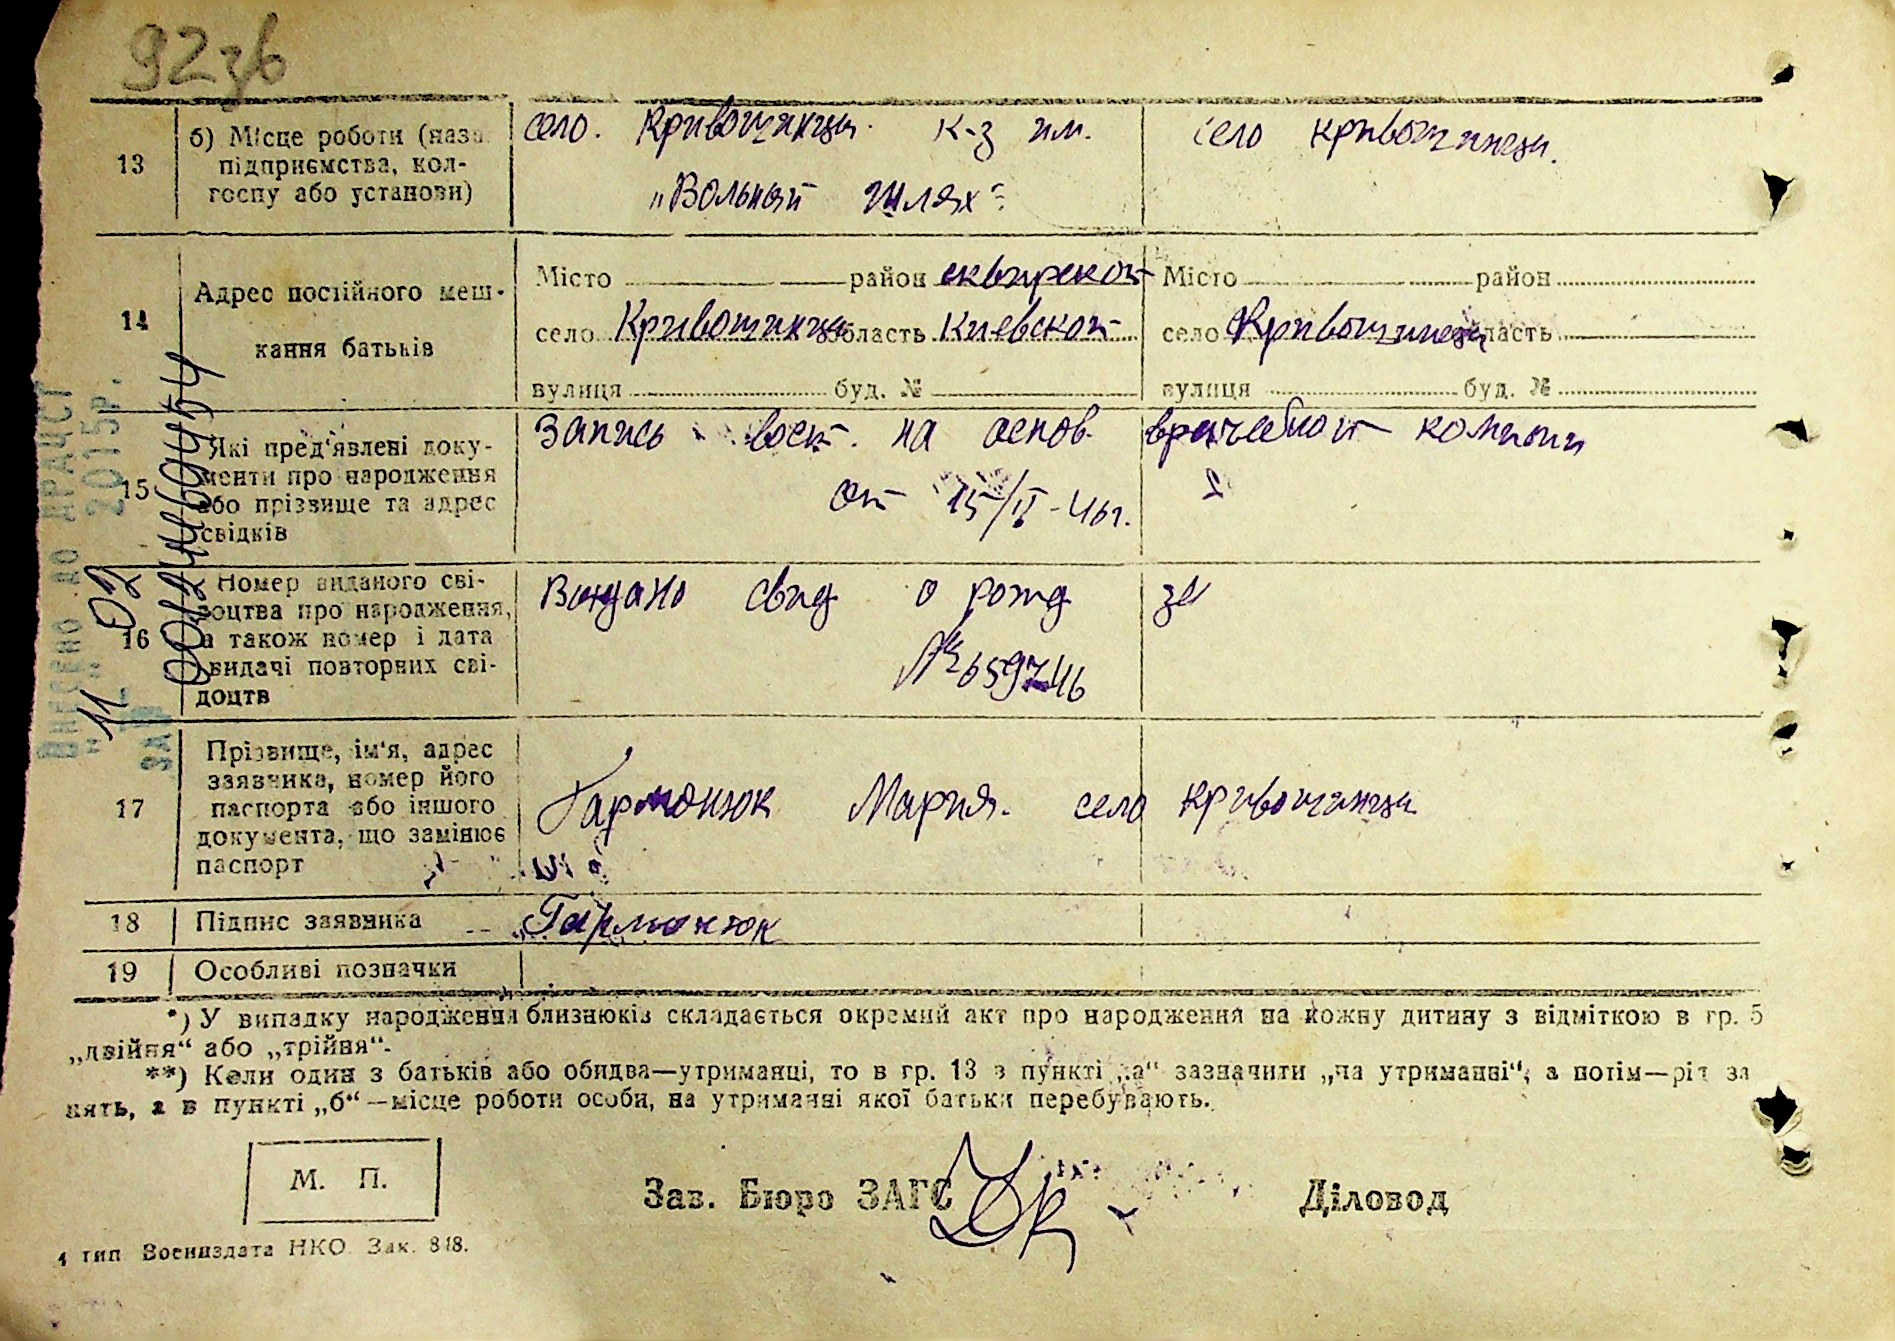 92зв
13 б) Місце роботи (назв. підприємства, колгоспу або установи)
село. Кривошиинци. к-з им. село Кривошиинеци.
„Вольный шлях“
14 Адрес постійного мешкання батьків
Місто район сквирской Місто район
село Кривошиинци область Киевской село Кривошиинеци область
вулиця буд. № вулиця буд. №
15 Які пред'явлені документи про народження або прізвище та адрес свідків
Запись вост. на основ. врачебной комисии
от 15/II-46г.
16 Номер виданого свідоцтва про народження, а також номер і дата видачі повторних свідоцтв
Выдано свид о рожд за
№ 659746
17 Прізвище, ім'я, адрес заявника, номер його паспорта або іншого документа, що замінює паспорт
Гармонюк Мария. село Кривошиинци
18 Підпис заявника Гармонюк
19 Особливі позначки
*) У випадку народження близнюків складається окремий акт про народження на кожну дитину з відміткою в гр. 5
„двійня“ або „трійня“.
**) Коли один з батьків або обидва—утриманці, то в гр. 13 в пункті „а“ зазначити „на утриманні“, а потім—рід за
нять, а в пункті „б“—місце роботи особи, на утриманні якої батьки перебувають.
М. П.
Зав. Бюро ЗАГС Діловод
4 тип Воениздата НКО Зак. 848.
Внесено до ДРАЦСГ
"11" 02 2015р.
ЗА №